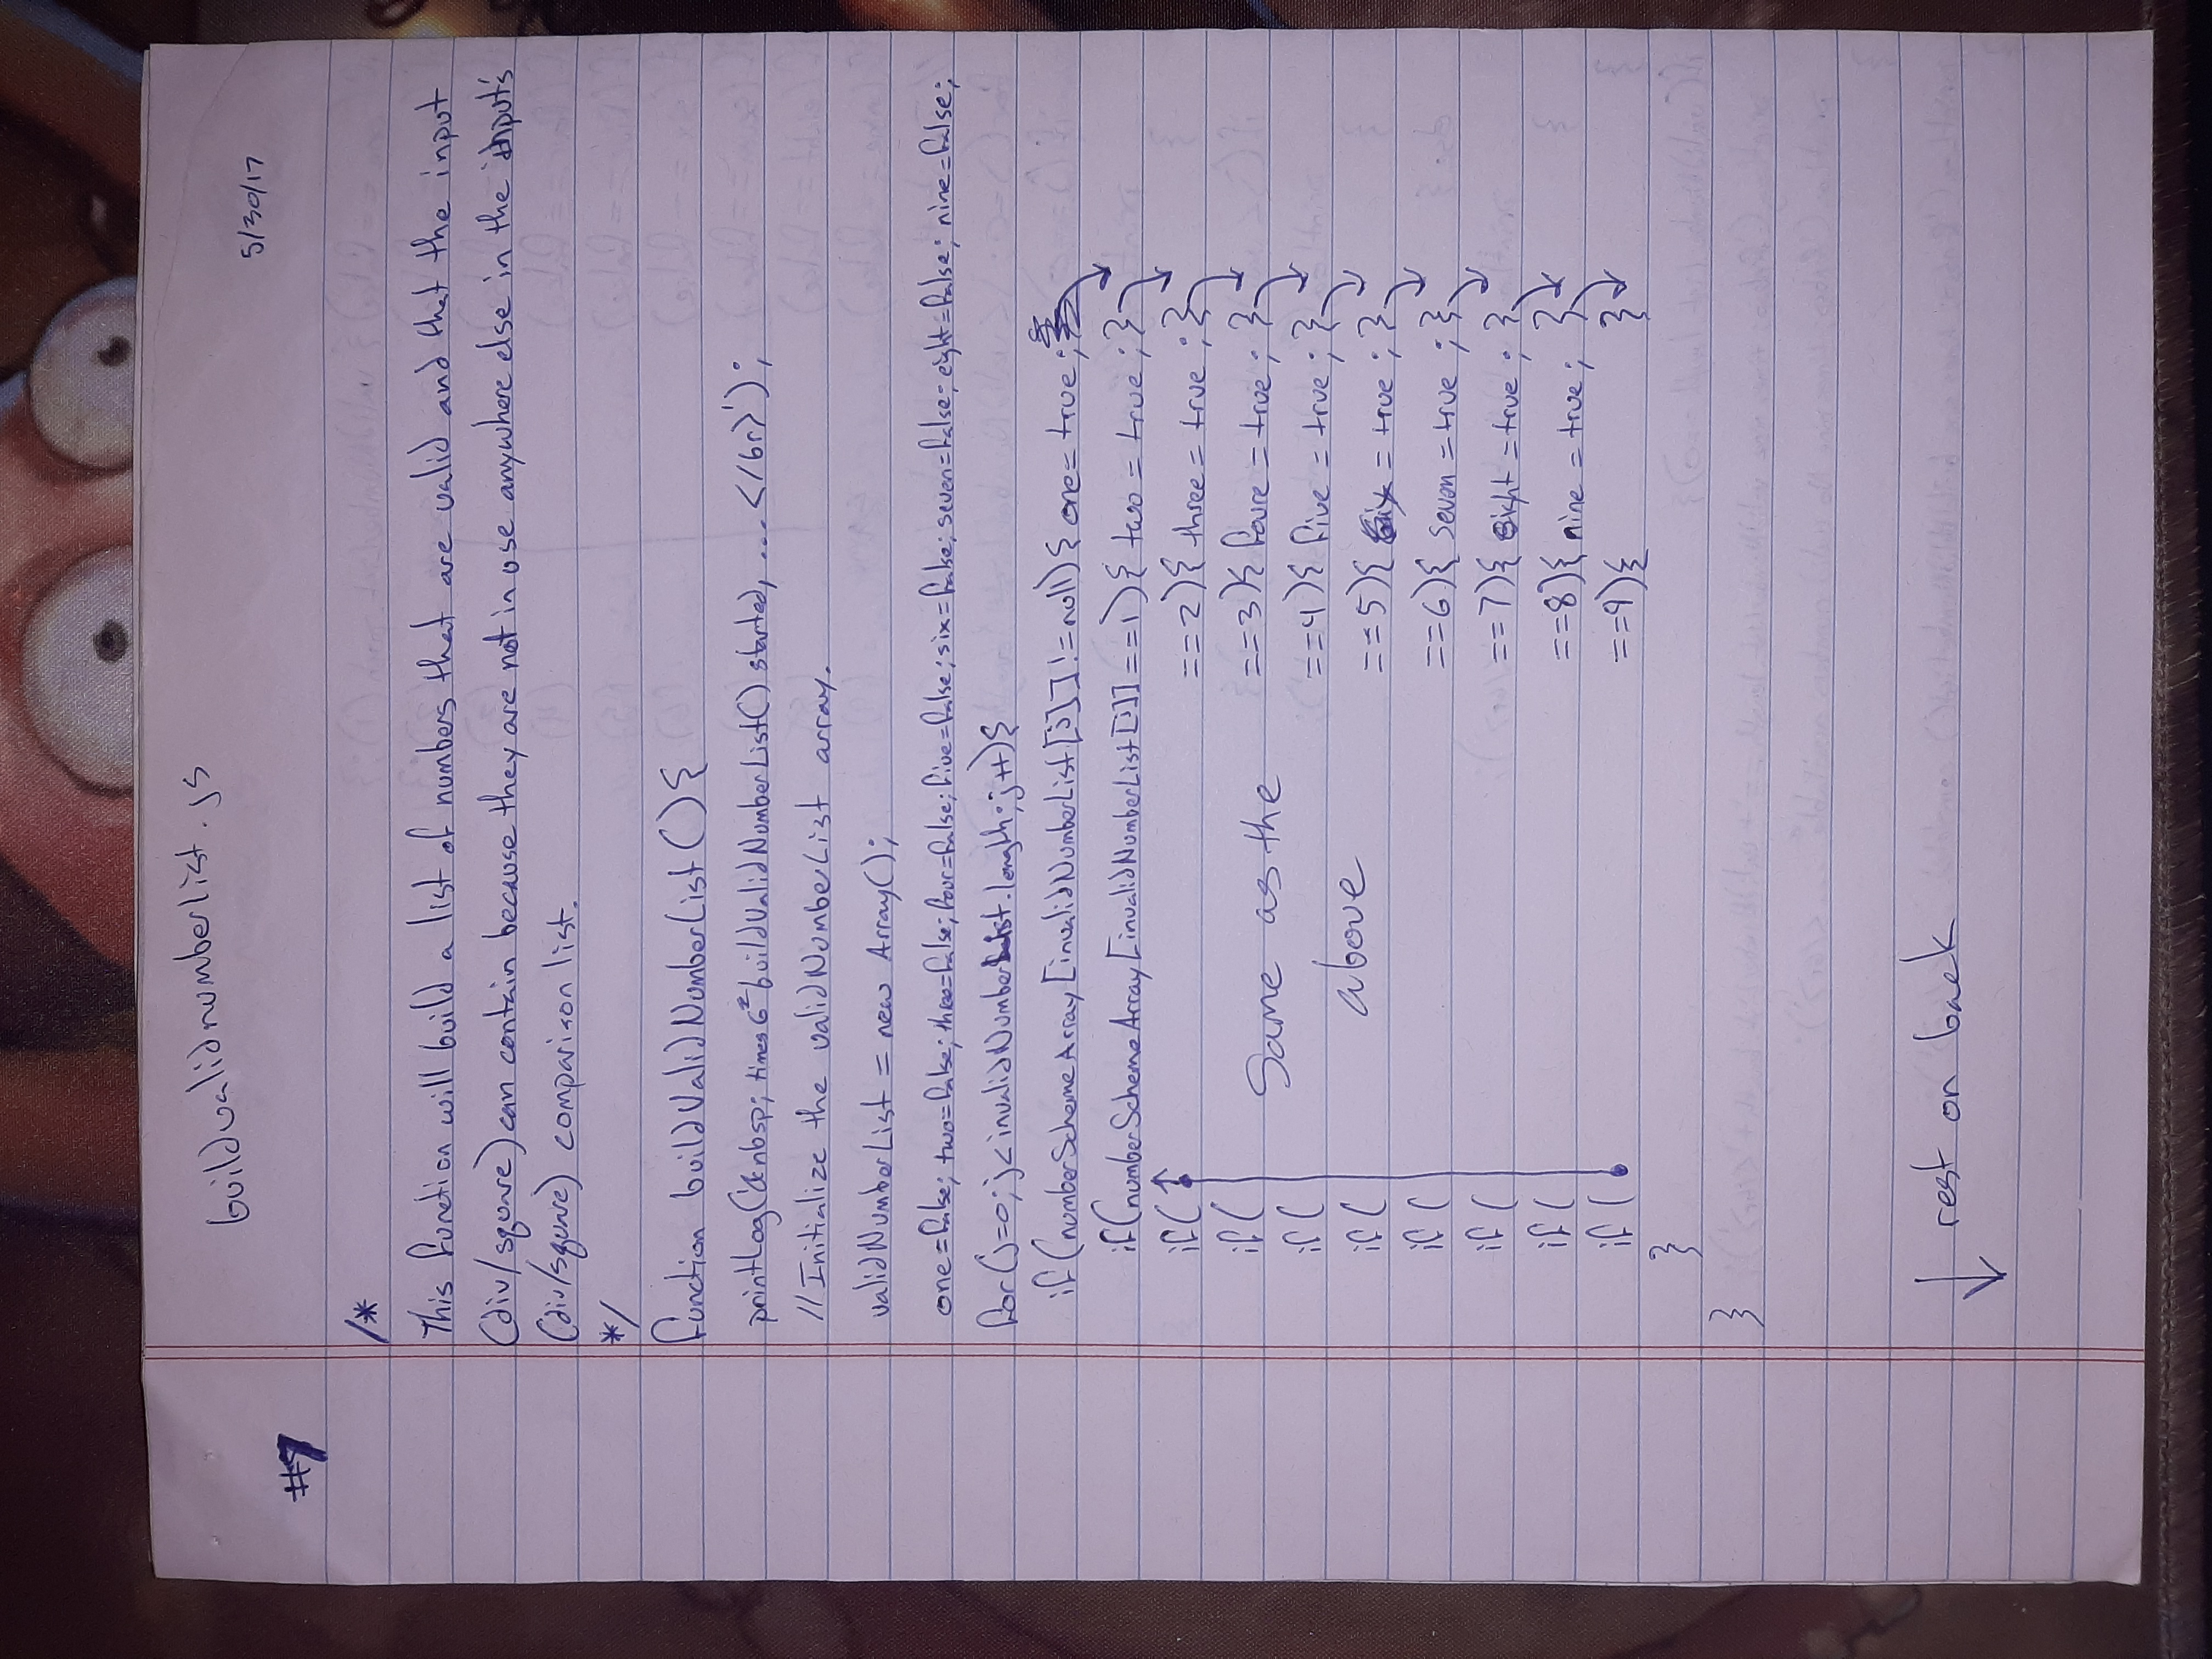 buildvalidnumberlist.js
5/30/17
#7
/*
This function will build a list of numbers that are valid and that the input
(div/square) can contain because they are not in use anywhere else in the input's
(div/square) comparison list.
*/
function buildValidNumberList(){
printLog('&nbsp; times 6 buildValidNumberList() started, ... </br>');
//Initialize the validNumberList array.
validNumberList = new Array();
one=false; two=false; three=false; four=false; five=false; six=false; seven=false; eight=false; nine=false;
for(j=0; j<invalidNumberList.length; j++){
if(numberSchemeArray[invalidNumberList[j]]!=null){ one=true;
if(numberSchemeArray[invalidNumberList[j]]==1){ two = true; }
if( ==2){ three = true; }
if( ==3){ foure = true; }
if( ==4){ five = true; }
if( ==5){ six = true; }
if( ==6){ seven = true; }
if( ==7){ eight = true; }
if( ==8){ nine = true; }
if( ==9){ }
Same as the
above
}
}
rest on back